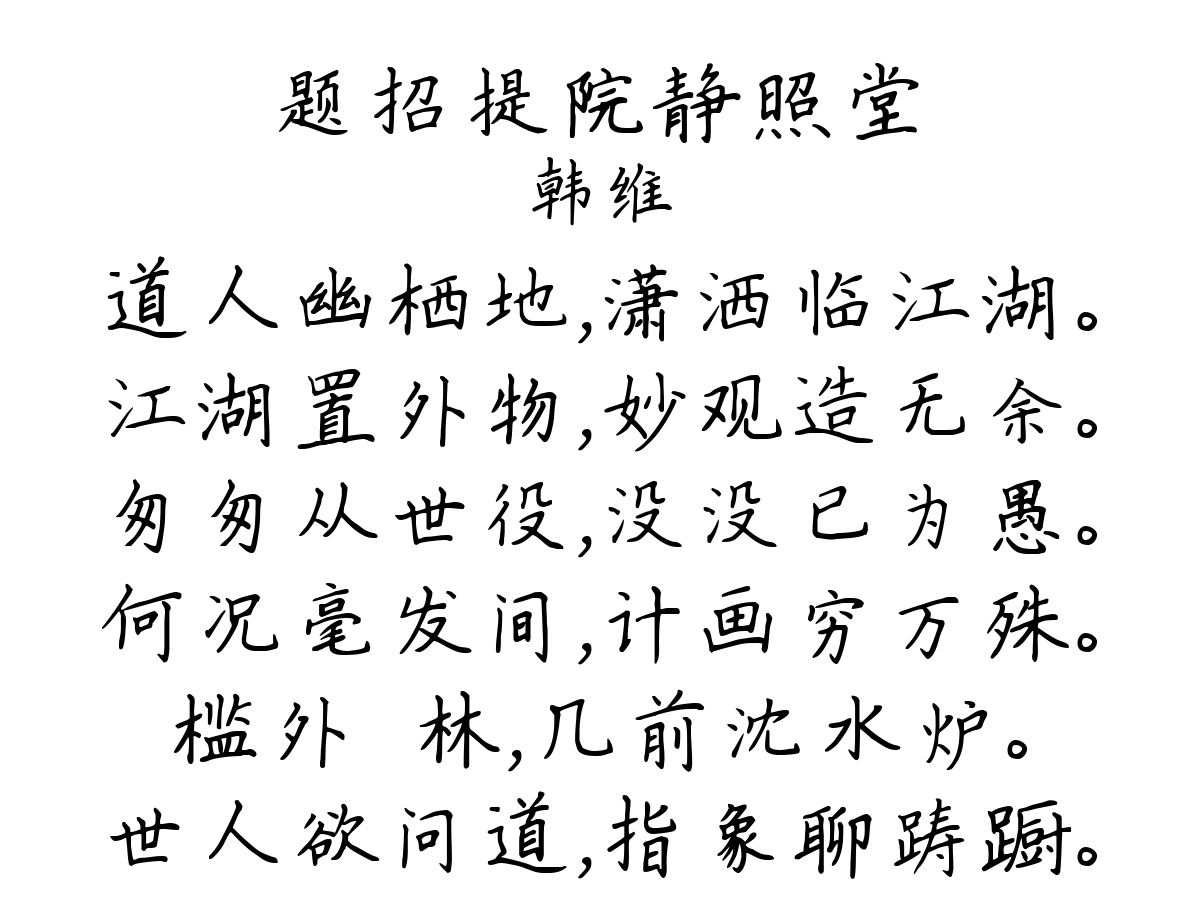 题招提院静照堂
韩维
道人幽栖地,潇洒临江湖。
江湖置外物,妙观造无余。
匆匆从世役,没没已为愚。
何况毫发间,计画穷万殊。
槛外 林,几前沈水炉。
世人欲问道,指象聊踌蹰。